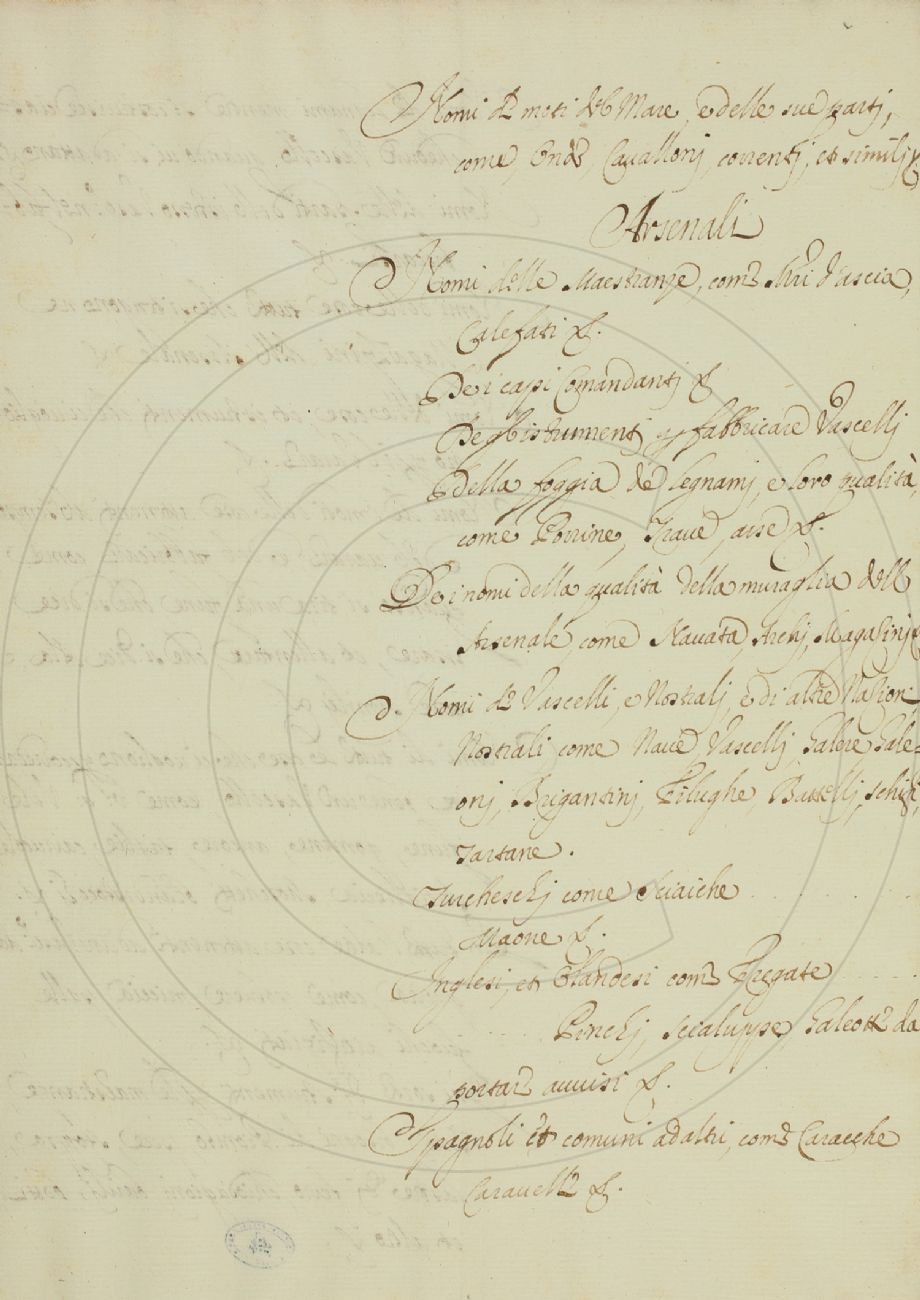 Nomi de moti del Mare, e delle sue parti,
come Onde, Cavallonj, correntj, et similj &
Arsenali
Nomi delle Maestranze, come d'ascia,
Calefati &.
De i capi Comandantj &
Degl'istrumentj per fabbricare Vascellj
Della foggia de Legnamj, e loro qualità
come Trave, asse &.
De i nomi della qualità della muraglia dell
Arsenale, come Navata, Archj, Magasinj &
Nomi de Vascelli, e Nostralj, e di altre Nasionj
Nostrali come Nave, Vascellj Galere Gale=
onj, Brigantinj, Filughe, Battellj, schifi,
Tartane.
Turcheschj come Sciaiche
Maone &.
Inglesi, et Olandesi come Fregate
Pinchj, Galeotte da
portare avvisi &.
Spagnoli et comuni ad altri, come Caracche
Caravelle &.